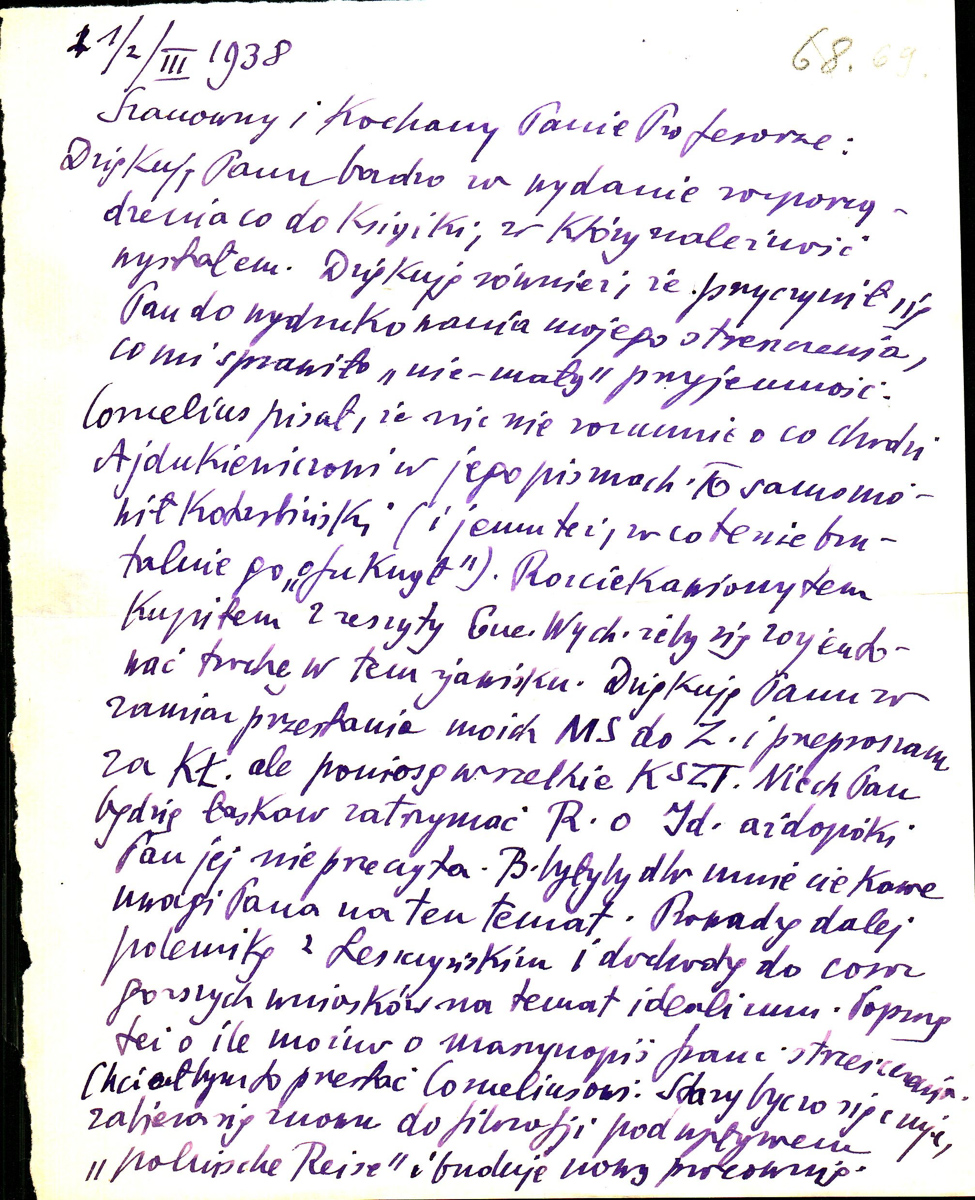 1/2/III 1938
68. 69.
Szanowny i Kochany Panie Profesorze:
Dziękuję Panu bardzo za wydanie rozporzą-
dzenia co do książki, za którą należność
wysłałem. Dziękuję również, że przyczynił się
Pan do wydrukowania mojego streszczenia,
co mi sprawiło „nie-małą" przyjemność.
Cornelius pisał, że nic nie rozumie o co chodzi
Ajdukiewiczowi w jego pismach. To samo mó-
wił Kotarbiński (i jemu też, za co tenże bru-
talnie go „ofuknął"). Rozciekawiony tem
kupiłem 2 zeszyty Enc. Wych. żeby się zorjento-
wać trochę w tem zjawisku. Dziękuję Panu za
zamiar przesłania moich MS do Z. i przepraszam
za KŁ. ale poniosę wszelkie KSZT. Niech Pan
będzie łaskaw zatrzymać R. o Id. aż dopóki
Pan jej nie przeczyta. B. byłyby dla mnie ciekawe
uwagi Pana na ten temat. Prowadzę dalej
polemikę z Leszczyńskim i dochodzę do coraz
gorszych wniosków na temat idealizmu. Poproszę
też o ile można o maszynopis franc. streszczenia.
Chciałbym to przesłać Corneliusowi. Stary byczo się czuje,
zabiera się znowu do filozofji pod wpływem
„polnische Reise" i buduje nową pracownię.